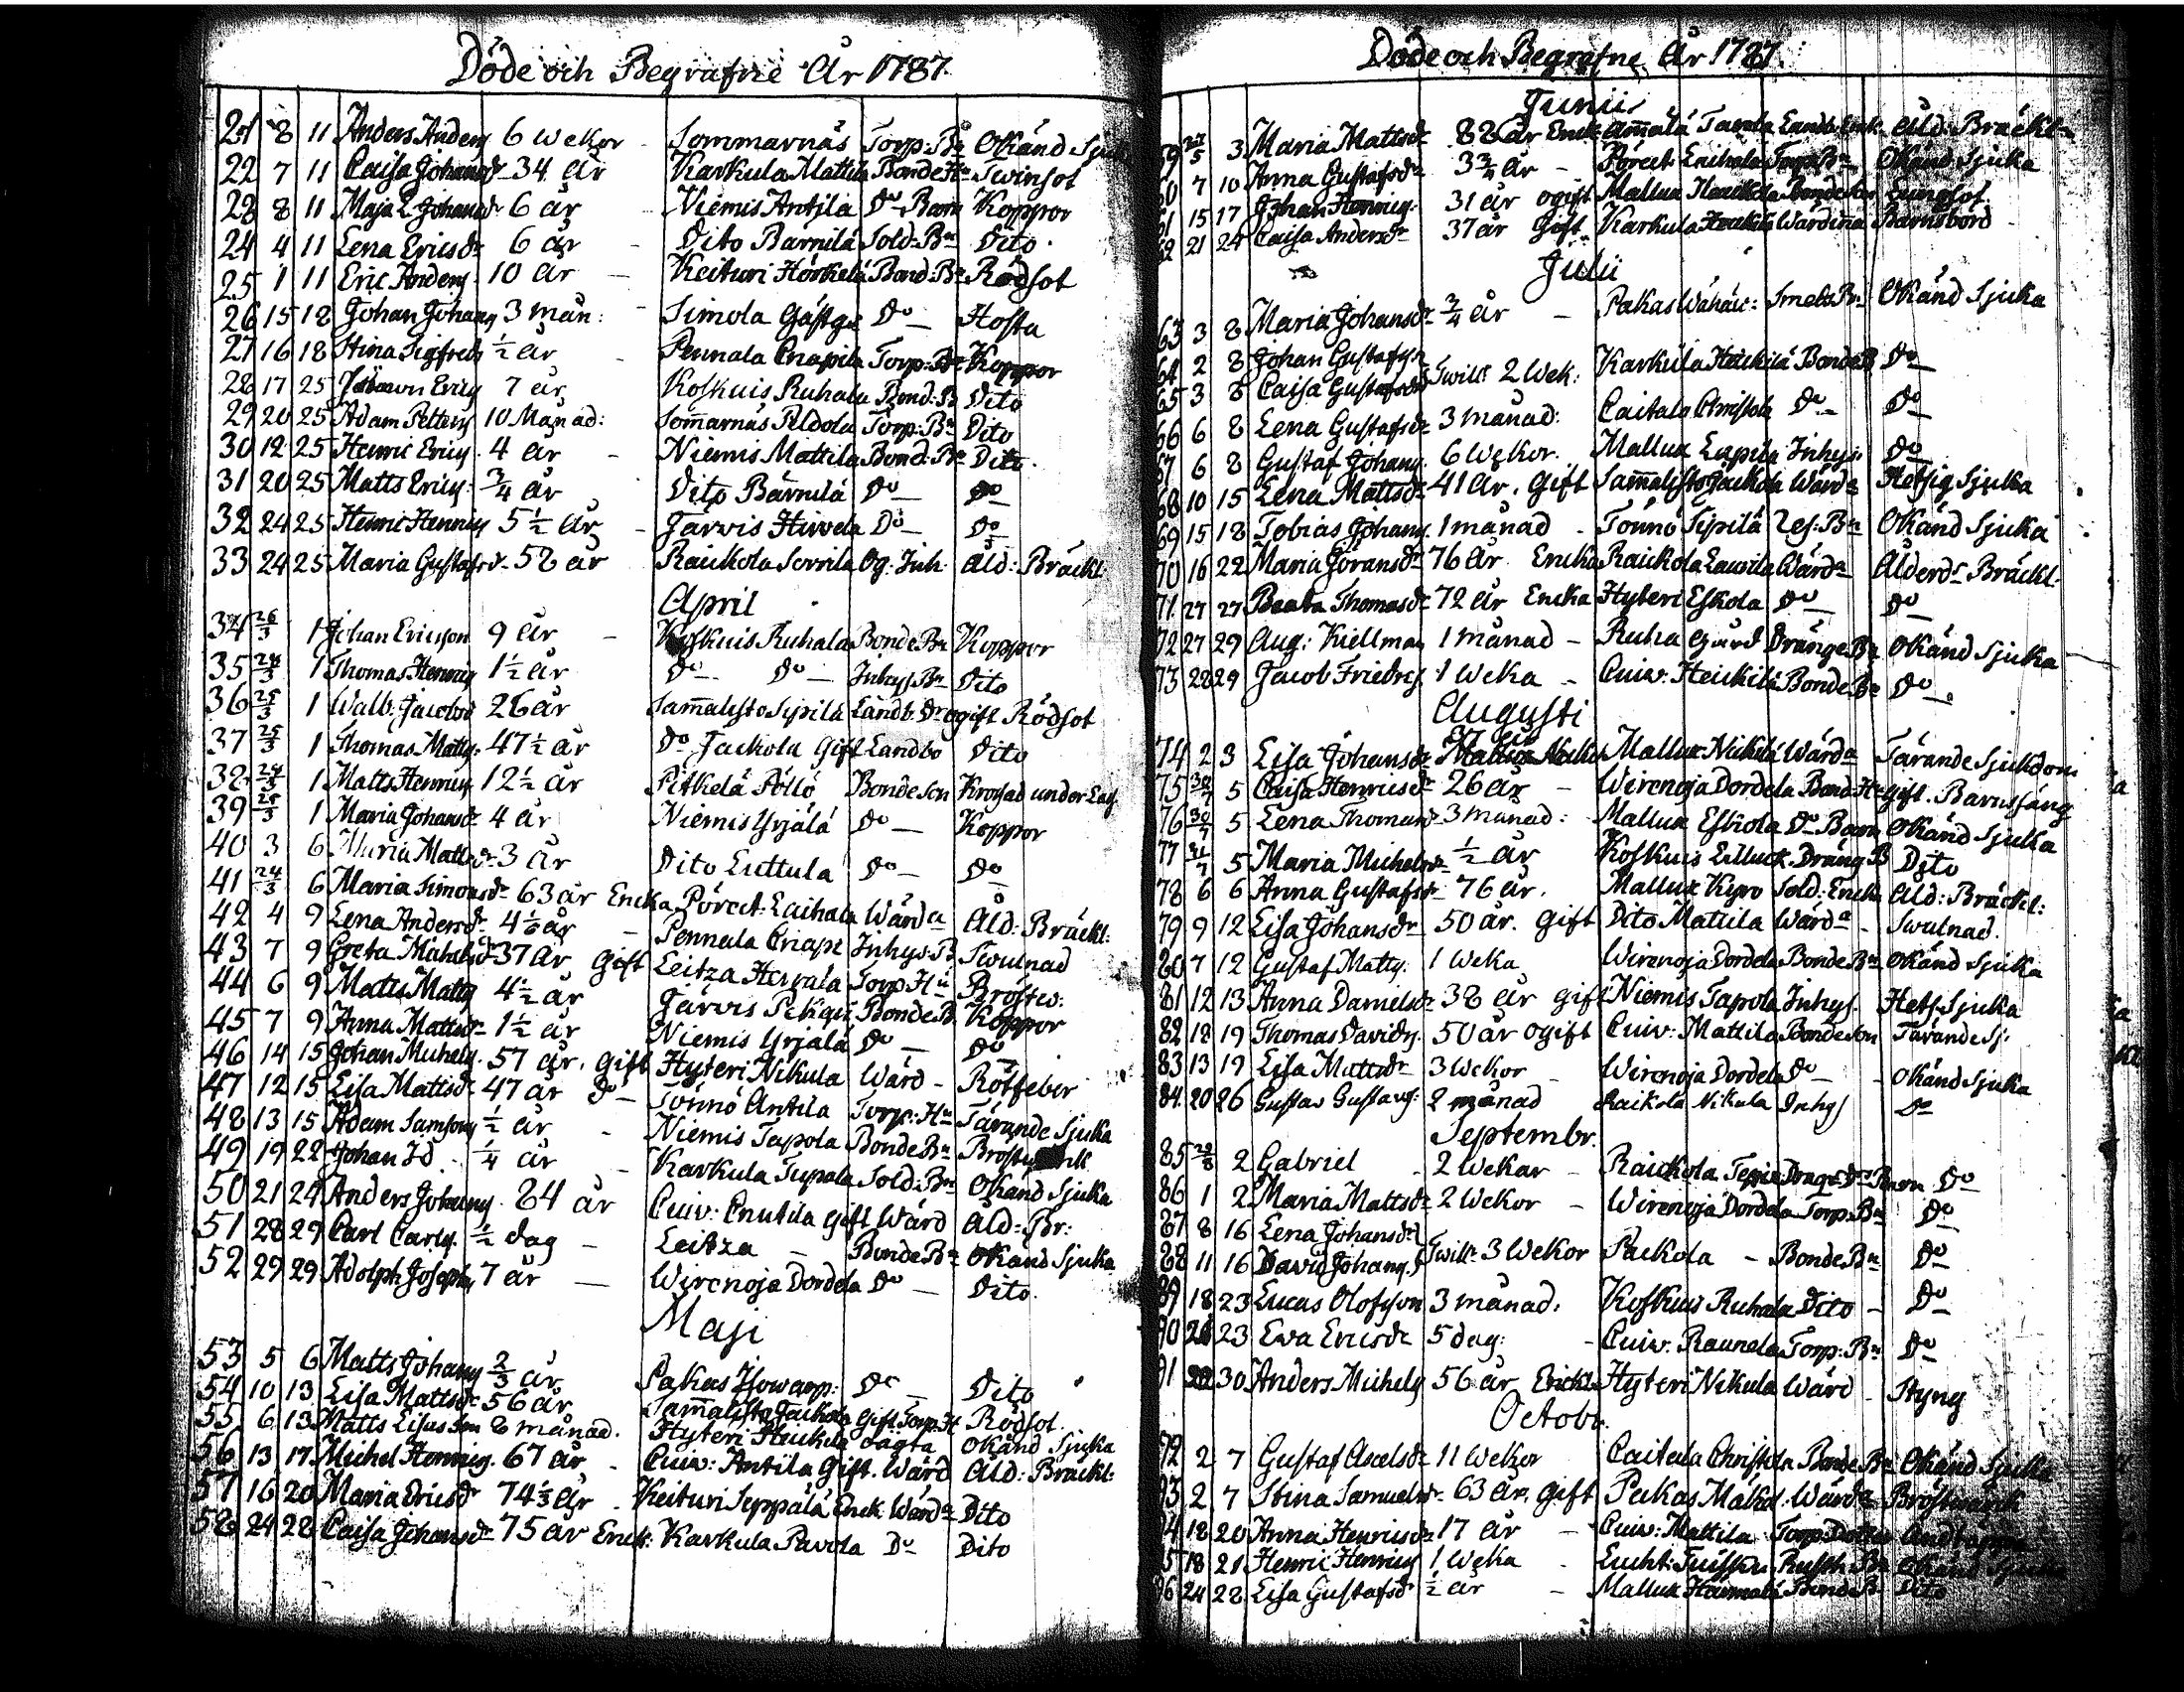 Döde och Begrafne År 1787.
21 8 11 Anders Anders 6 Wekor Sommarnäs Torp: Bn Okänd Sjuk
22 7 11 Caisa Johansdr 34 År Karkula Mattila Bonde Hu Twinsot
23 8 11 Maja L. Johansdr 6 år Niemis Antila Do Barn Koppor
24 4 11 Lena Ericsdr 6 år Dito Bärnilä Sold: Bn Dito
25 1 11 Eric Anders 10 år Keituri Hörkelä Bond: Bn Rödsot
26 15 18 Johan Johans 3 mån: Simola Gästg: Do Hosta
27 16 18 Stina Sigfreds ½ år Pennala Cnapila Torp: Bn Koppor
28 17 25 Erics 7 år Koskuis Ruhala Bond: B Dito
29 20 25 Adam Petters 10 Månad: Som̄arnäs Peldola Torp: Bn Dito
30 12 25 Henric Erics 4 år Niemis Mattila Bond: Bn Dito
31 20 25 Matts Erics ¾ år Dito Bärnilä Do Do
32 24 25 Henric Henrics 5½ år Jarvis Hirvela Do Do
33 24 25 Maria Gustafsdr 58 år Raickola Sorrila Og: Inh: Åld: Bräckl:
April
34 26/3 1 Johan Ericsson 9 år Koskuis Ruhala Bonde Bn Koppor
35 24/3 1 Thomas Henrics 1½ år Do Do Inhys Bn Dito
36 25/3 1 Walb: Jacobsd 26 år Sam̄alisto Sipilä Landb: Dr ogift Rödsot
37 25/3 1 Thomas Matts: 47½ år Do Jackola Gift Landbo Dito
38 24/3 1 Matts Henrics 12½ år Pitkelä Pöllö Bonde Son Krossad under Las
39 25/3 1 Maria Johansdr 4 år Niemis Yrjälä Do Koppor
40 3 6 Maria Mattsdr 3 år Dito Luttula Do Do
41 24/3 6 Maria Simonsdr 63 år Encka Pörect: Laihala Wärda Åld: Bräckl:
42 4 9 Lena Andersdr 4½ år Pennala Cnape Inhys: B Swulnad
43 7 9 Greta Michelsdr 37 år Gift Leitza Hervala Torp: Hu Bröstw:
44 6 9 Matts Matts 4½ år Järvis Pekari Bonde B Koppor
45 7 9 Anna Mattsdr 1½ år Niemis Yrjälä Do Do
46 14 15 Johan Michels. 57 år. Gift Hyteri Nikula Wärd Rötfeber
47 12 15 Lisa Mattsdr 47 år Do Tönnö Antila Torp: Hu Tärande Sjuka
48 13 15 Adam Samsons ½ år Niemis Tapola Bonde Bn
49 19 22 Johan Id. ¼ år Karkula Tupala Sold: Bn Okänd Sjuka
50 21 24 Anders Johans 84 år Cuiv: Cnutila Gift Wärd Åld: Br:
51 28 29 Carl Carls. ½ dag Leitza Bonde Bn Okänd Sjuka
52 29 29 Adolph Josephs 7 år Wirenoja Dordela Do Dito.
Maji
53 5 6 Matts Johans ⅔ år Pakas Isovarp: Do Dito
54 10 13 Lisa Mattsdr 56 år Sam̄alisto Jackola Gift Torp: H Rödsot.
55 6 13 Matts Lisas Son 8 månad. Hyteri Heickilä oägta Okänd Sjuka
56 13 17 Michel Henrics. 67 år Cuiv: Antila Gift. Wärd Åld: Bräckl:
57 16 20 Maria Ericsdr 74⅓ år Keituri Seppälä Enck. Wärda Dito
58 24 28 Caisa Johansdr 75 år Enck: Karkula Pavola Do Dito
Döde och Begrafne År 1787.
Junii
59 27/5 3 Maria Mattsdr 88 år Enck: Am̄alä Tavola Landb: Enk: Åld: Bräckl:
60 7 10 Anna Gustafsdr 3¾ år Pörect: Laihala Torp Bn Okänd Sjuka
61 15 17 Johan Henrics. 31 år ogift Mallux Heickola Bonde Son Lungsot.
62 21 24 Caisa Andersdr 37 år Gift Karkula Heickilä Wärdina Barnsbörd
Julii
63 3 8 Maria Johansdr ¾ år Pakas Wähäw: Smeds Bn Okänd Sjuka
64 2 8 Johan Gustafsson
65 3 8 Caisa Gustafsdr Twill: 2 Wek: Karkula Heickilä Bonde B Do
66 6 8 Lena Gustafsdr 3 månad: Caitala Christola Do Do
67 6 8 Gustaf Johans. 6 Wekor. Mallux Lapila Inhys: Do
68 10 15 Lena Mattsdr 41 år. Gift Sam̄alisto Jackola Wärda Hetsig Sjuka
69 15 18 Tobias Johans 1 månad Tönnö Sipilä Res: Bn Okänd Sjuka
70 16 22 Maria Göransdr 76 år Encka Raickola Laurila Wärda Ålderds Bräckl.
71 27 27 Beata Thomasdr 72 år Encka Hyteri Eskola Do Do
72 27 29 Aug: Kiellman 1 månad Ruha Gård Dränge Bn Okänd Sjuka
73 28 29 Jacob Friedrs. 1 Weka Cuiv: Heickilä Bonde Bn Do
Augusti
74 2 3 Lisa Johansdr Mallux Nickilä Wärda Tärande Sjukdom
75 30/7 5 Caisa Henricsdr 26 år Wirenoja Dordela Bond: Hu gift. Barnsäng
76 30/7 5 Lena Thomasdr 3 månad: Mallux Eskola Do Barn Okänd Sjuka
77 31/7 5 Maria Michelsdr ½ år Koskuis Dräng B Dito
78 6 6 Anna Gustafsdr 76 år. Mallux Kyro Sold: Encka Åld: Bräckl:
79 9 12 Lisa Johansdr 50 år. Gift Dito Mattila Wärda Swulnad.
80 7 12 Gustaf Matts. 1 Weka Wirenoja Dordela Bonde Bn Okänd Sjuka
81 12 13 Anna Danielsdr 38 år Gift Niemis Tapola Inhys. Hets: Sjuka
82 18 19 Thomas Davids. 50 år ogift Cuiv: Mattila Bonde Son Tärande Sj.
83 13 19 Lisa Mattsdr 3 Wekor Wirenoja Dordela Do Okänd Sjuka
84 20 26 Gustav Gustavs: 2 månad Raikola Nikula Inhys Do
Septembr.
85 28/8 2 Gabriel 2 Wekar Raickola Barn Do
86 1 2 Maria Mattsdr 2 Wekor Wirenoja Dordela Torp: Bn Do
87 8 16 Lena Johansdr
88 11 16 David Johans. Twill: 3 Wekor Packola Bonde Bn Do
89 18 23 Lucas Olofsson 3 månad. Koskuis Ruhala Dito Do
90 23 Ewa Ericsdr 5 dag: Cuiv: Raunela Torp: Bn Do
91 30 Anders Michels 56 år Enckl: Hyteri Nikula Wärd Styng
Octobr.
92 2 7 Gustaf 11 Wekor Caitala Christola Bonde Bn Okänd Sjuka
93 2 7 Stina Samuelsdr 63 år. Gift Pakas Mäkel: Wärda Bröstwärk
94 18 20 Anna Henricsdr 17 år Cuiv: Mattila Torp: Dotter
95 18 21 Henric Henrics 1 Weka Lucht: Bn Okänd Sjuka
96 24 28 Lisa Gustafsdr ½ år Mallux Bonde B Dito